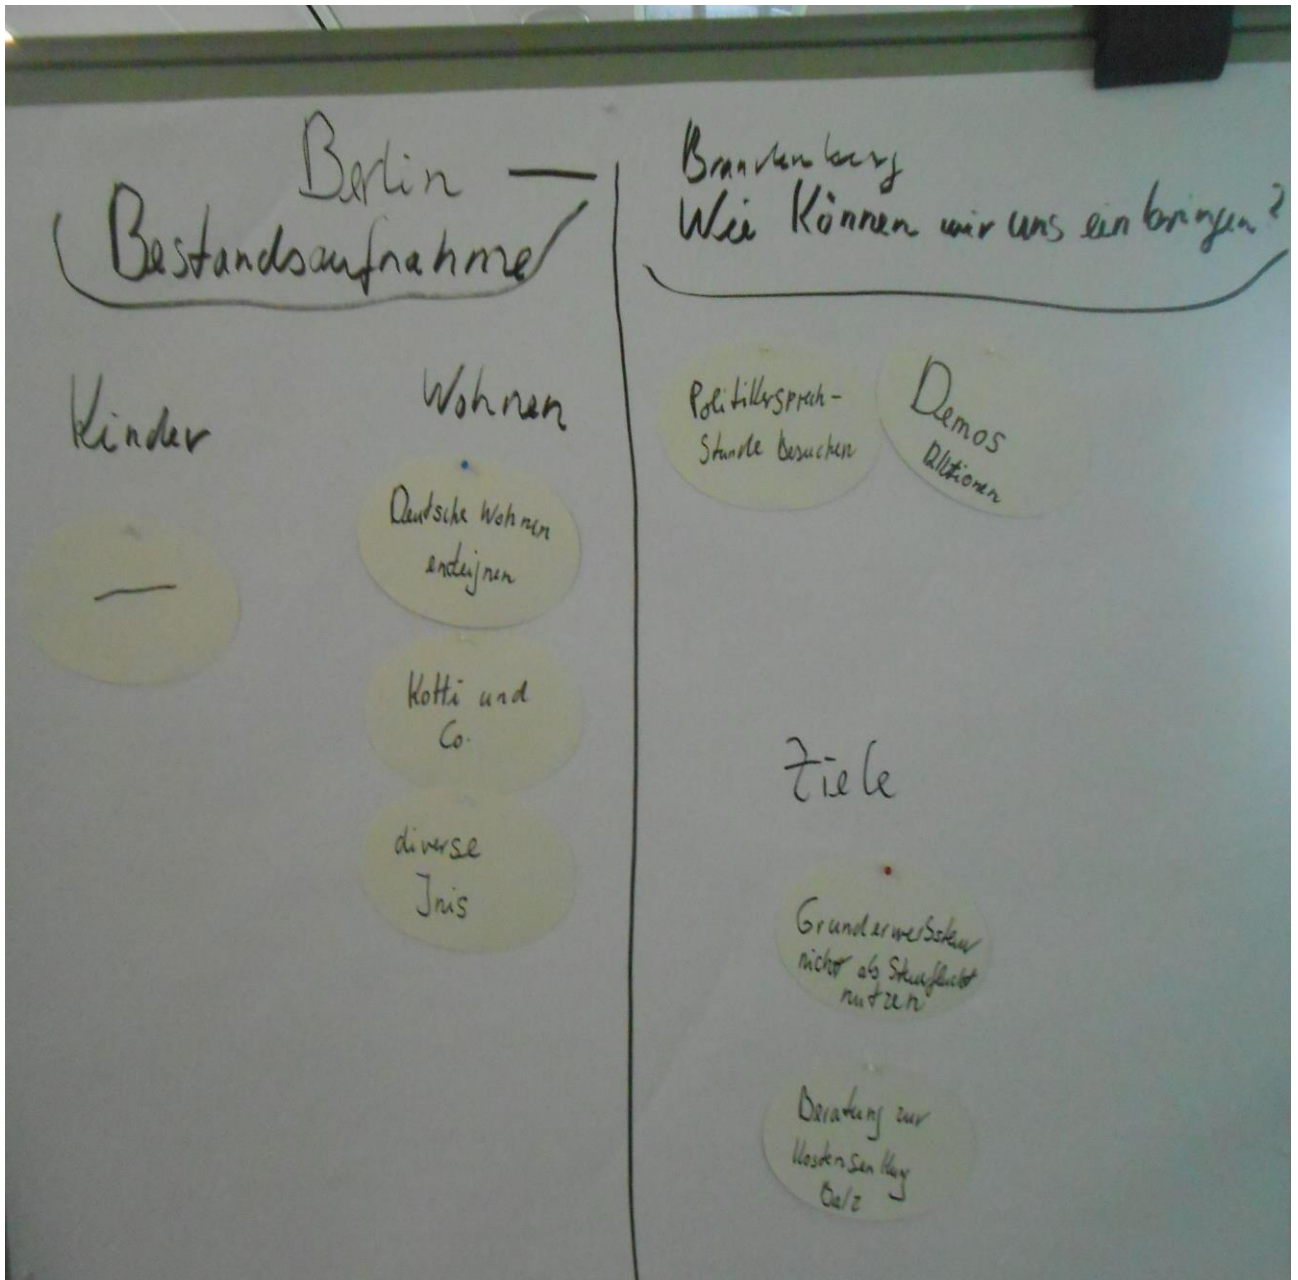 Berlin —
Bestandsaufnahme
Kinder
—
Wohnen
Deutsche Wohnen
enteignen
Kotti und
Co.
diverse
Inis
Brandenburg
Wie können wir uns einbringen?
Politikersprech-
stunde besuchen
Demos
Aktionen
Ziele
Grunderwerbsteuer
nicht als Steuerflucht
nutzen
Beratung zur
Kostensenkung